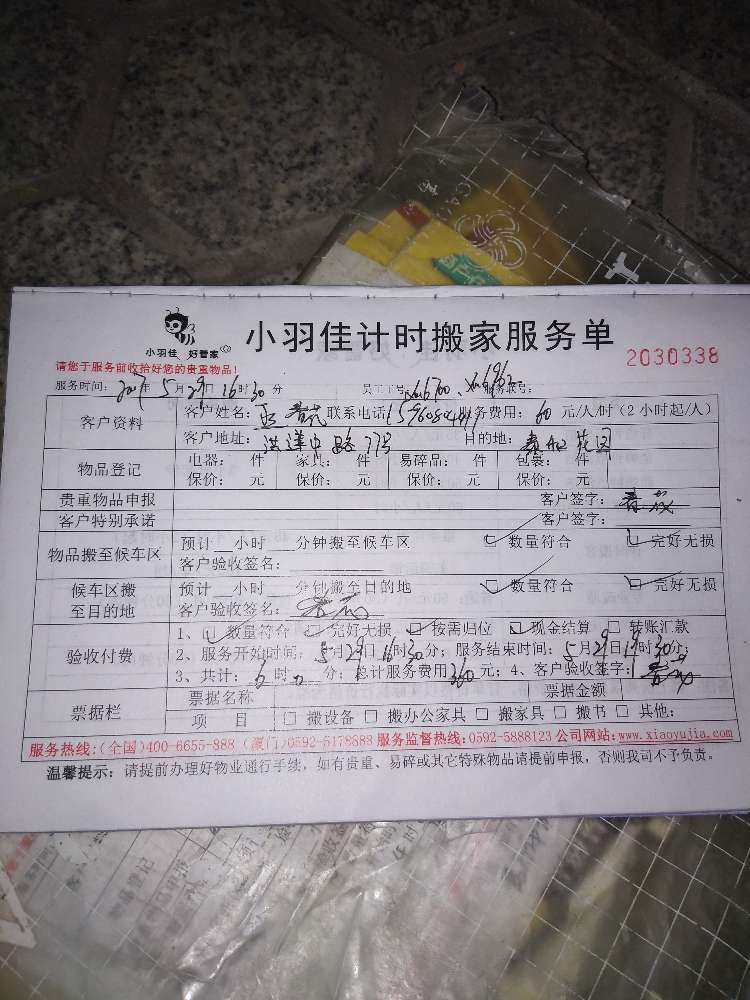 小羽佳计时搬家服务单
小羽佳 好管家
2030338
请您于服务前收拾好您的贵重物品!
服务时间: 2017年 5月 29日 16时 30分 员工工号: 服务联号:
客户资料 客户姓名: 联系电话: 服务费用: 60 元/人/时(2小时起/人)
客户地址: 洪莲中路77号 目的地: 泰和花园
物品登记 电器: 件 家具: 件 易碎品: 件 包裹: 件
保价: 元 保价: 元 保价: 元 保价: 元
贵重物品申报 客户签字:
客户特别承诺 客户签字:
物品搬至候车区 预计__小时___分钟搬至候车区 数量符合 完好无损
客户验收签名:
候车区搬至目的地 预计__小时___分钟搬至目的地 数量符合 完好无损
客户验收签名:
验收付费 1、数量符合 完好无损 按需归位 现金结算 转账汇款
2、服务开始时间: 5月29日16时30分; 服务结束时间: 5月29日19时30分;
3、共计: 6时0分; 总计服务费用360元; 4、客户验收签字:
票据栏 票据名称 票据金额
项 目 □ 搬设备 □ 搬办公家具 □ 搬家具 □ 搬书 □ 其他:
服务热线:(全国)400-6655-888 (厦门)0592-5178888 服务监督热线:0592-5888123 公司网站:www.xiaoyujia.com
温馨提示: 请提前办理好物业通行手续,如有贵重、易碎或其它特殊物品请提前申报,否则我司不予负责。